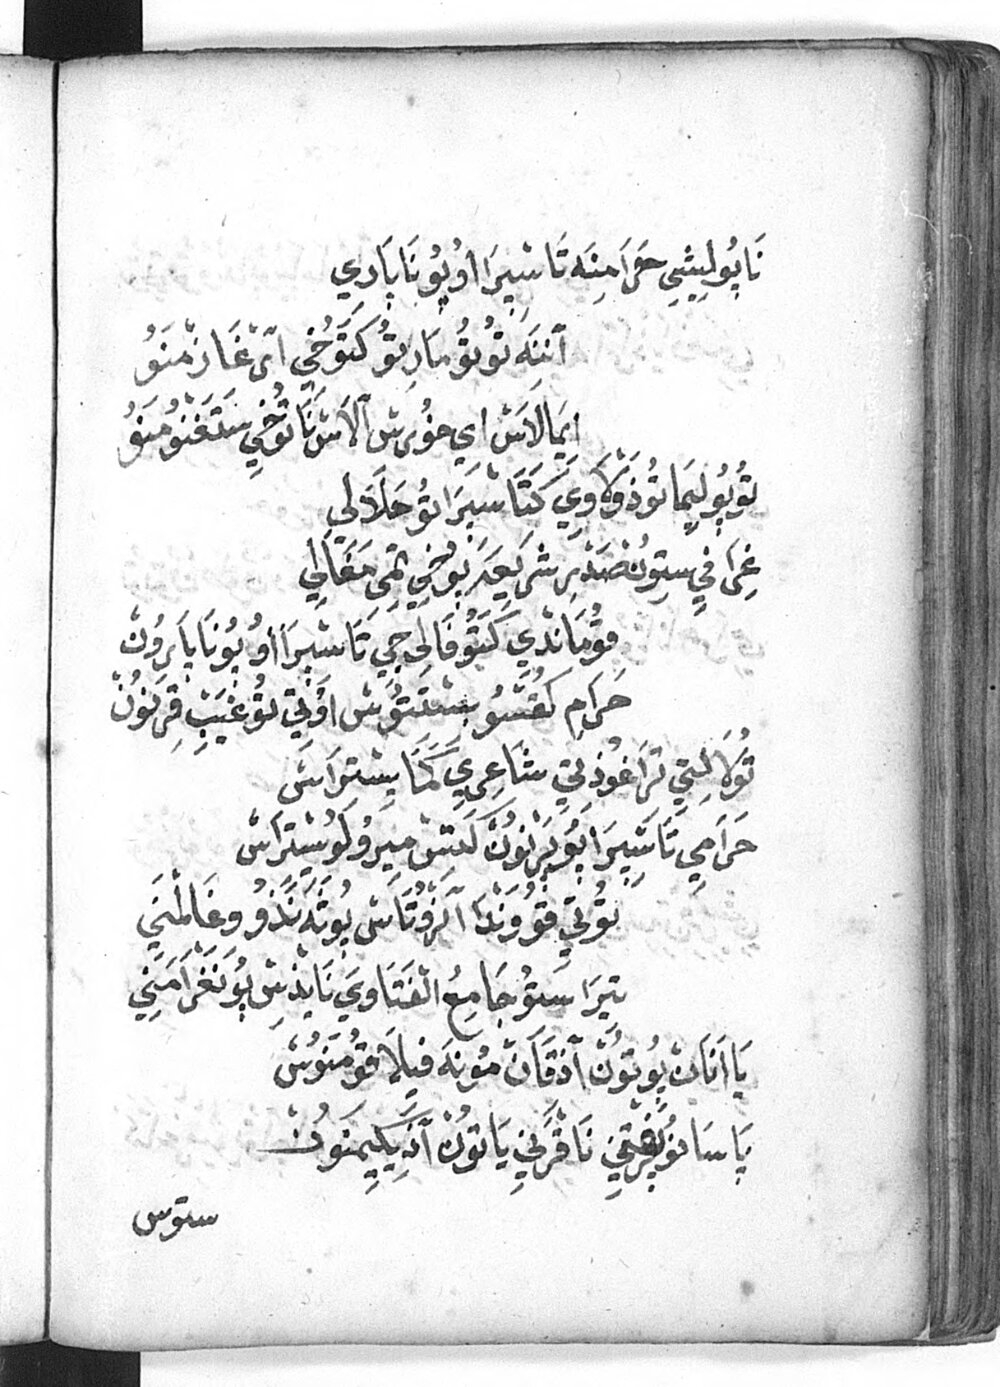 نَاپُولِيشِي حَرَامِنَه تَاشْپِرَا اُوپُو نَاپَارِي
آنَنَه تُوتُو مَارِتُو كَتَوُخِي اَرْغَازْمَنَوُ
اِيمَالَاشْ اِي خُورِسْ آلَاسْ نَاتُوخِي سْتَغْنُومَنَوُ
تُوپُولِيمَا تُوذَوُلَاوِي كَتَاشْپِرَاتُو حَلَالِي
غِرَافِي سِتُونْ صَدْرِ شَرِيعَه پُوخِي تِمِي مَقَالِي
قُومَانْدِي كَتُوفَالِي جِي تَاشْپِرَا اُوپُو نَاپَارُونْ
حَرَامِ كَقُسُّو سْتُتُوسْ اَوُتِي تُوغَيْبِ قِرَنُونْ
تُولَالِيتِي تْرَاغُوذِتِي شَاعِرِي كَمَاپِسْتِرَاسْ
حَرَامِي تَاشْپِرَا پُوپَرْنُونْ كَيتِسْ مِيرُوكُوسْتِرَاسْ
تُوتِي قُورُونْدَا اَرَوُتَاسْ پُوتَه نَدُو وغَالْمَنِي
تِيرَا سَتُو جَامِعُ الْفَتَاوِي نَايْذِسْ پُونَغْرَامَنِي
يَا اَنَانْ پُوتُونْ آدْقَانْ مُونَه فِيلَاقُومَنُوسْ
پَاسَانُو پَرْخَتِنِي نَاقْرِنِي يَاتُونْ آذِيكِيمَنُونْ
ستوس